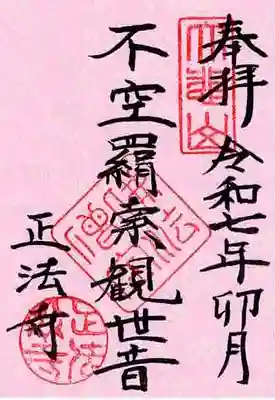 奉拝 令和七年卯月
不空羂索観世音
正法寺